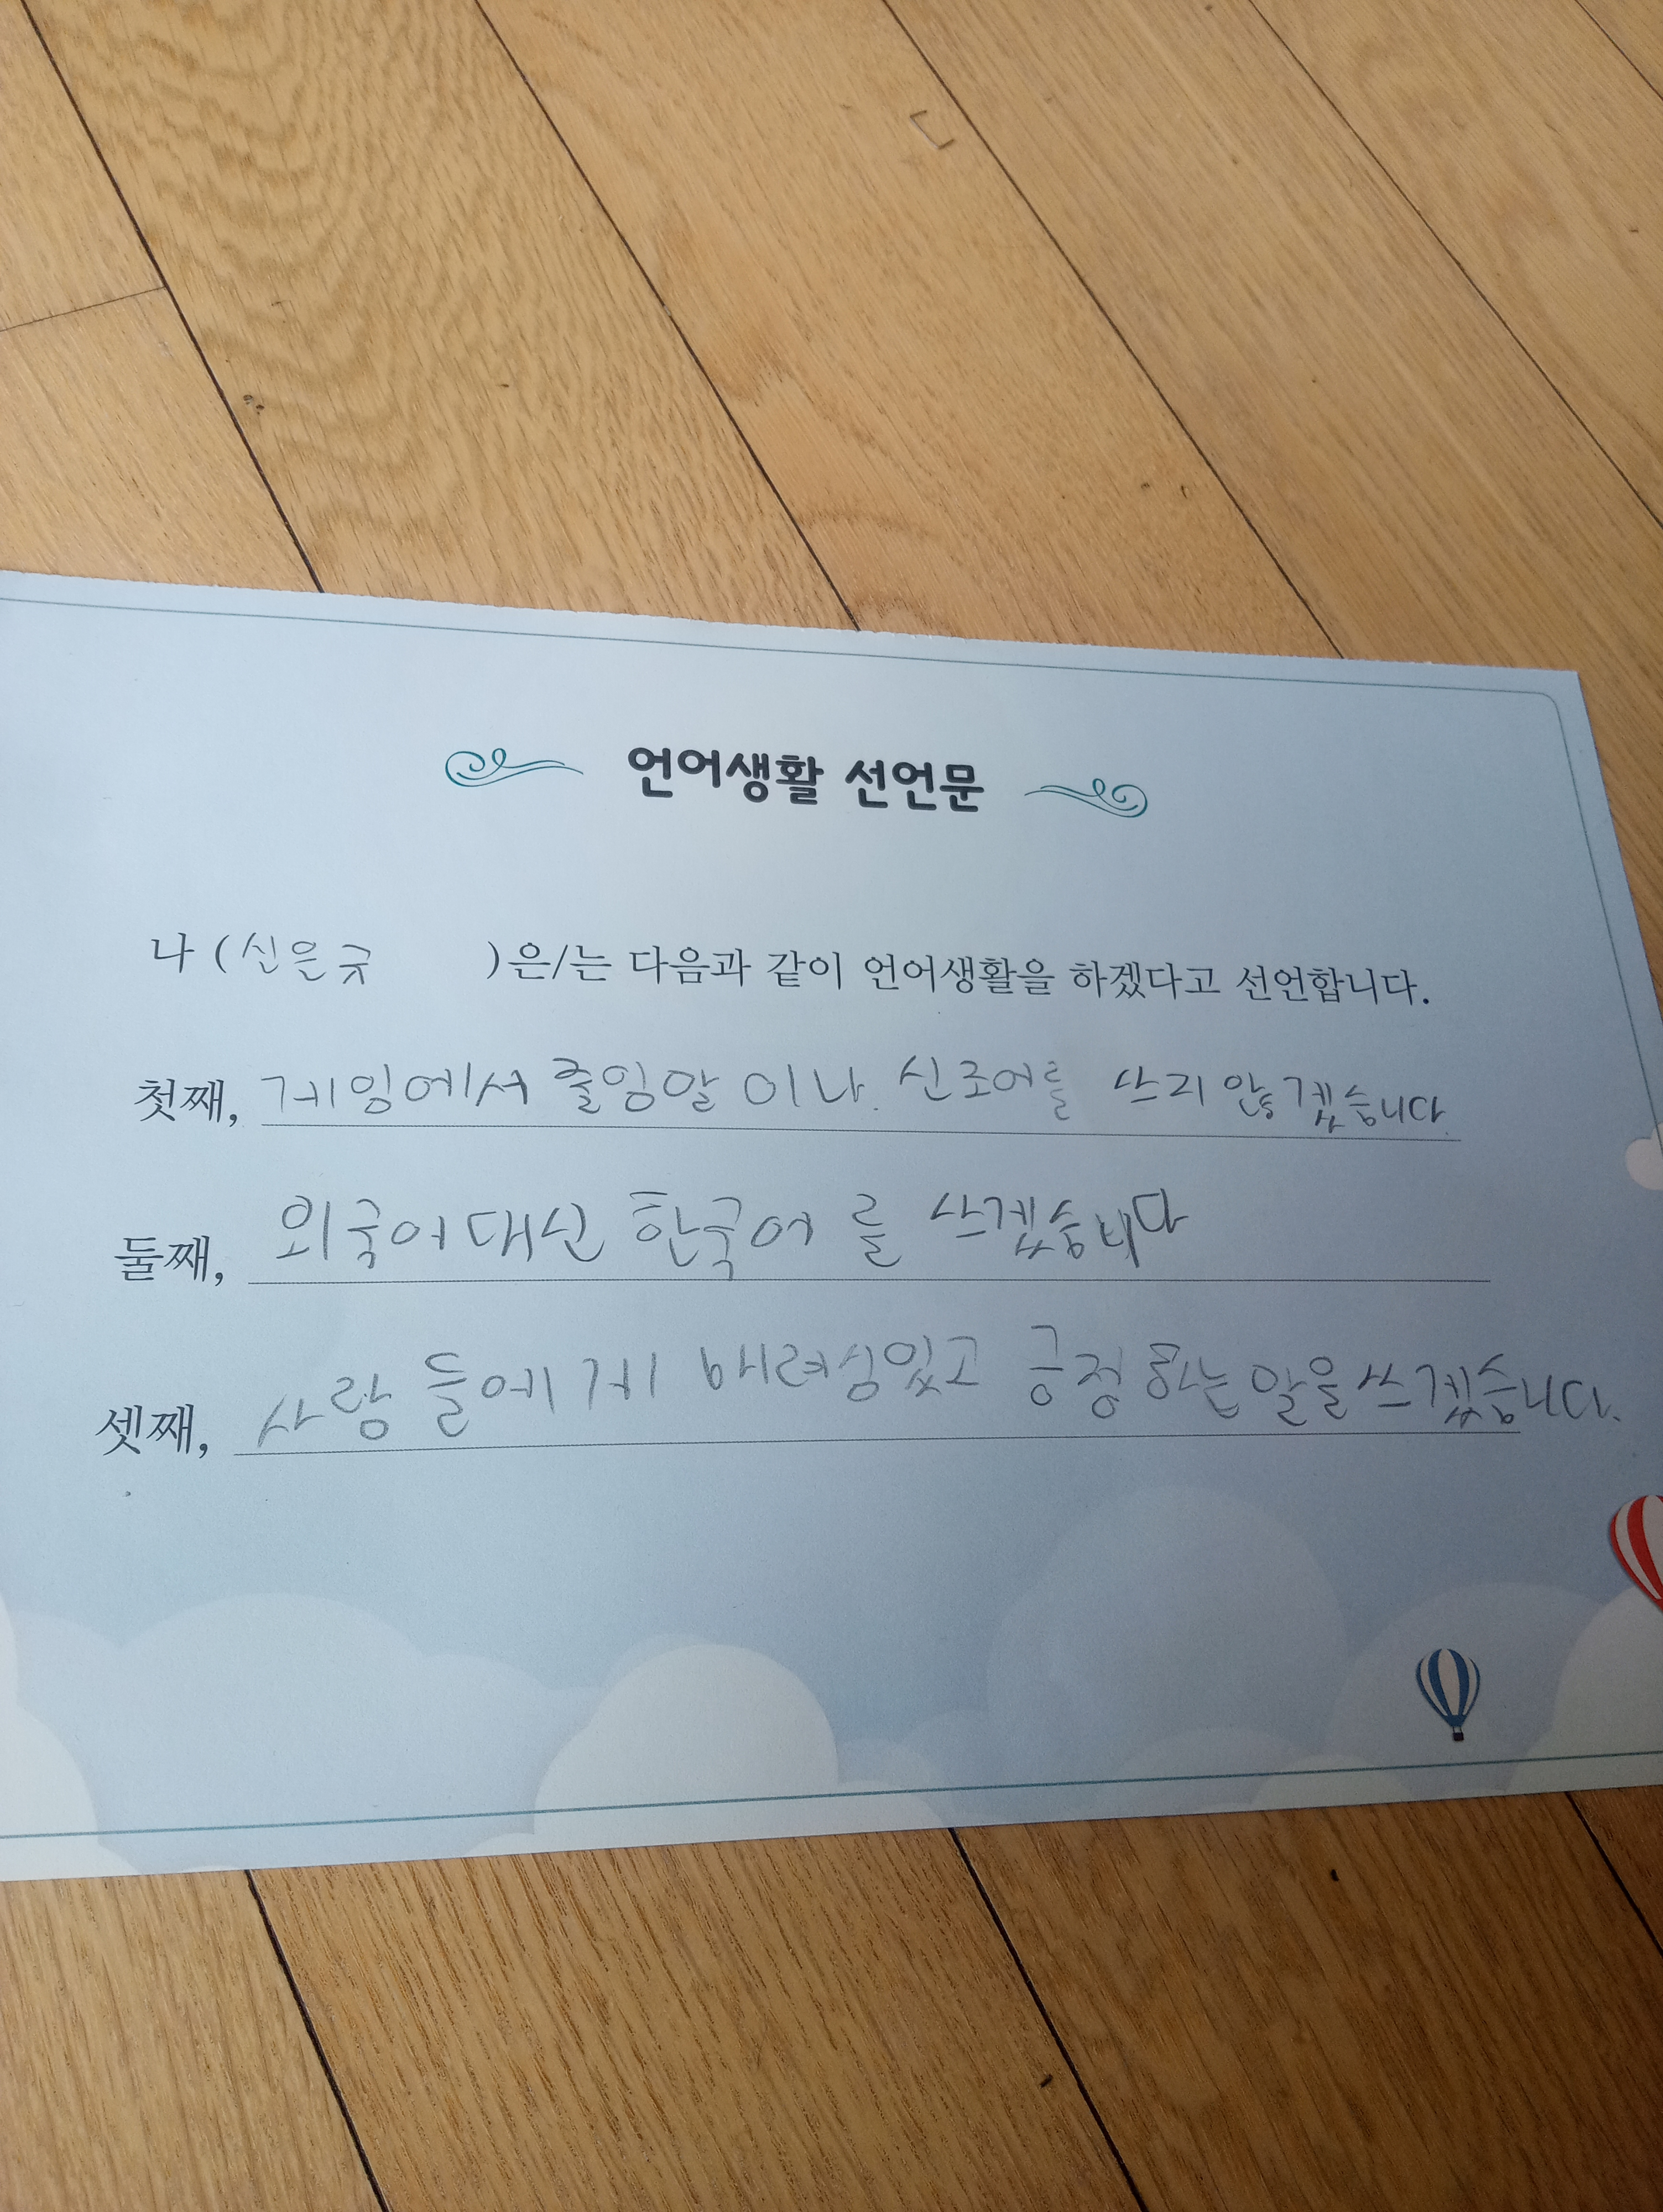 언어생활 선언문
나 (신은규 )은/는 다음과 같이 언어생활을 하겠다고 선언합니다.
첫째, 게임에서 줄임말 이나 신조어를 쓰지 않겠습니다.
둘째, 외국어 대신 한국어 를 쓰겠습니다
셋째, 사람 들에게 배려심있고 긍정하는 말을 쓰겠습니다.